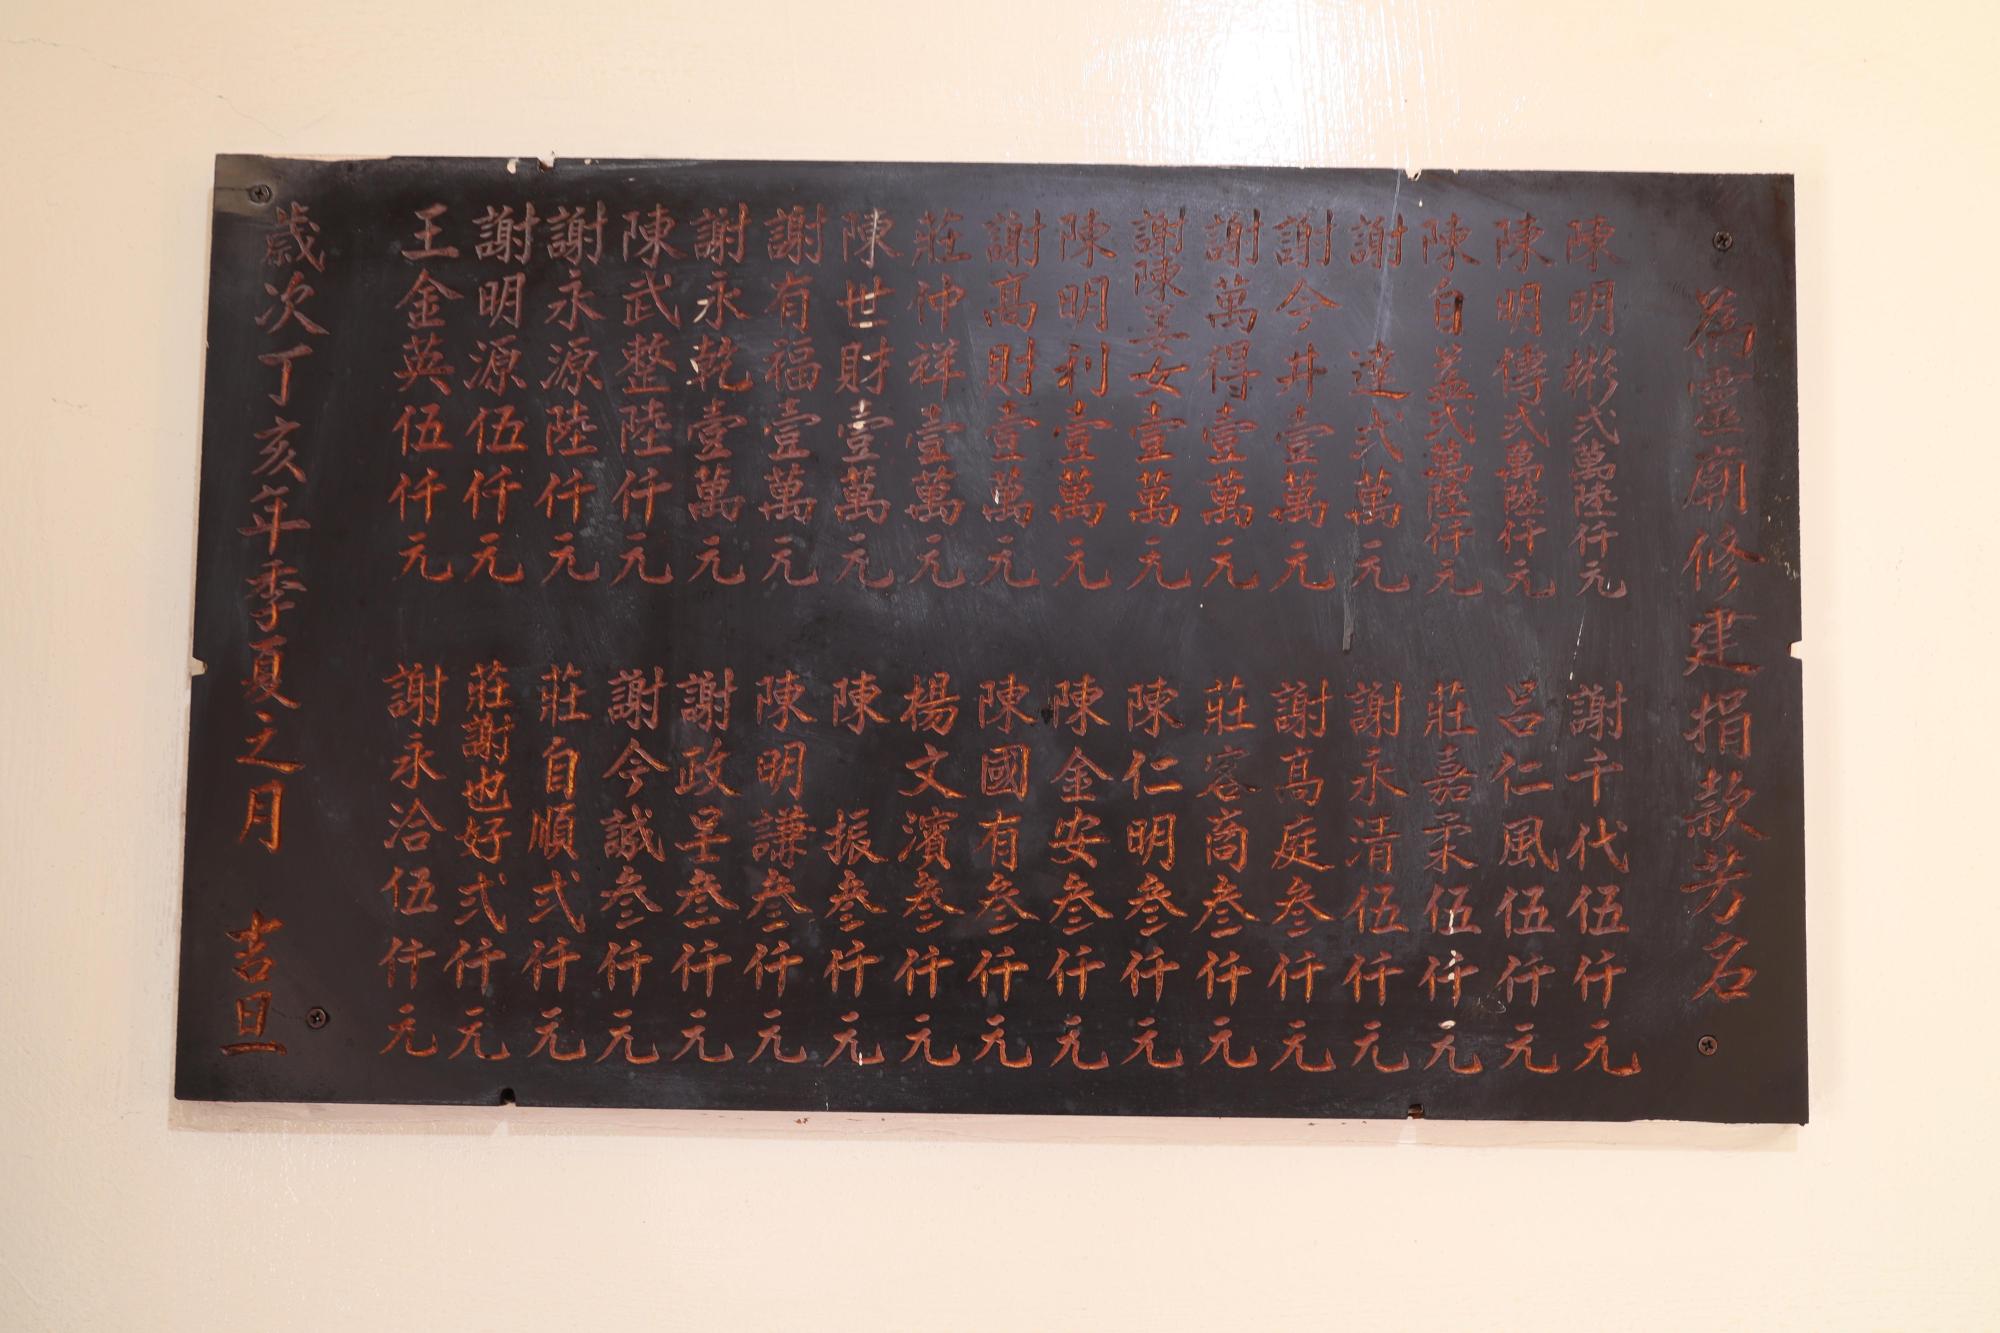 為靈廟修建捐款芳名
陳明彬弍萬陸仟元
陳明傳弍萬陸仟元
陳自益弍萬陸仟元
謝達弍萬元
謝今井壹萬元
謝萬得壹萬元
謝陳姜女壹萬元
陳明利壹萬元
謝高財壹萬元
莊仲祥壹萬元
陳世財壹萬元
謝有福壹萬元
謝永乾壹萬元
陳武整陸仟元
謝永源陸仟元
謝明源伍仟元
王金英伍仟元
謝千代伍仟元
呂仁風伍仟元
莊嘉柔伍仟元
謝永清伍仟元
謝高庭叁仟元
莊容商叁仟元
陳仁明叁仟元
陳金安叁仟元
陳國有叁仟元
楊文濱叁仟元
陳振叁仟元
陳明謙叁仟元
謝政呈叁仟元
謝今誠叁仟元
莊自順弍仟元
莊謝也好弍仟元
謝永洽伍仟元
歲次丁亥年季夏之月 吉旦